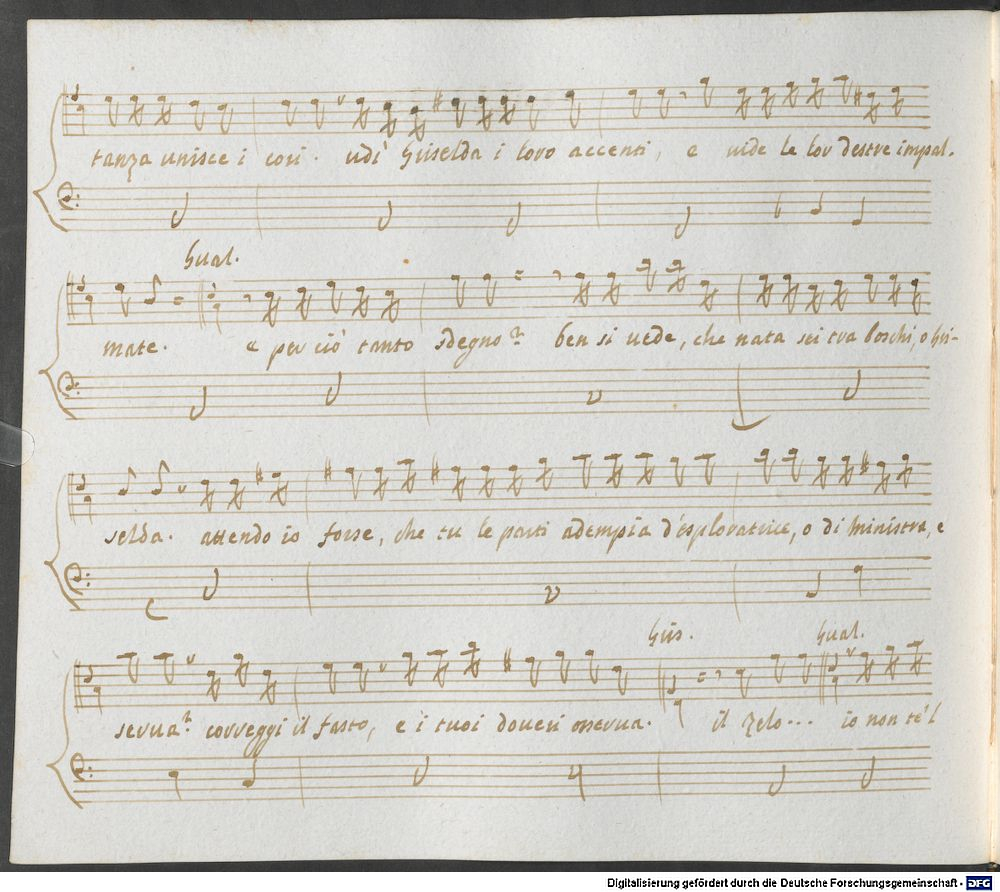 tanza unisce i cori. udi' Griselda i loro accenti, e vide le lor destre impal-
Gual.
mate. e per ciò tanto sdegno? ben si vede, che nata sei tra boschi, o Gri-
selda. attendo io forse, che tu le parti adempia d'esploratrice, o di ministra, e
Gris. Gual.
serva? correggi il fasto, e i tuoi doveri osserva. il zelo... io non te 'l
Digitalisierung gefördert durch die Deutsche Forschungsgemeinschaft - DFG